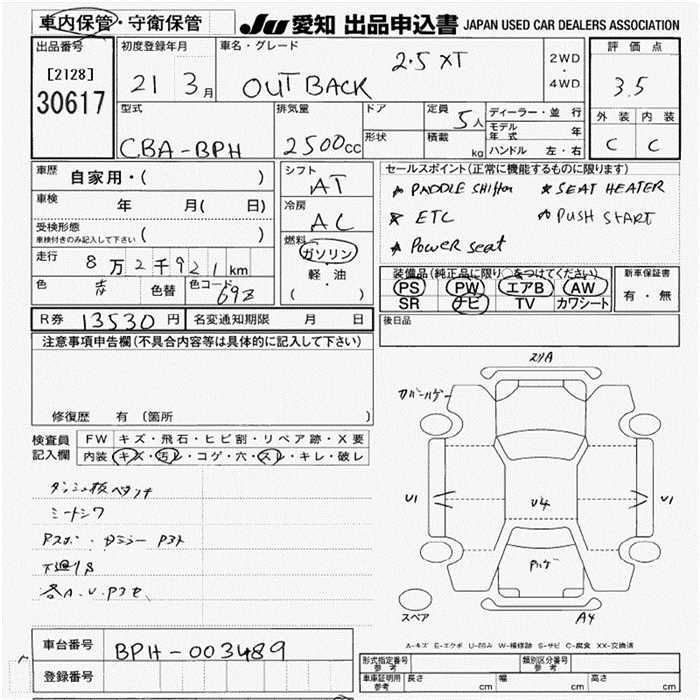 車内保管・守衛保管
JU 愛知 出品申込書 JAPAN USED CAR DEALERS ASSOCIATION
出品番号
[2128]
30617
初度登録年月
21 3月
車名・グレード
OUTBACK 2.5 XT
2WD
・
4WD
評価点
3.5
外装 内装
C C
型式
CBA-BPH
排気量
2500cc
ドア
形状
定員
5人
積載
kg
ディーラー・並行
モデル年式 年
ハンドル 左・右
車歴
自家用・( )
車検
年 月( 日)
受検形態
車検付きのみ記入して下さい ( )
走行
8万2千921km
色 青 色替 色コード 69Z
シフト
AT
冷房
AC
燃料
ガソリン
軽・油
( )
セールスポイント(正常に機能するものに限ります)
PADDLE Shifter SEAT HEATER
ETC PUSH START
Power seat
装備品(純正品に限り○をつけてください)
PS PW エアB AW
SR ナビ TV カワシート
新車保証書
有・無
R券 13530円 名変通知期限 月 日
後日品
注意事項申告欄(不具合内容等は具体的に記入して下さい)
修復歴 有 (箇所 )
検査員記入欄
FW キズ・飛石・ヒビ割・リペア跡・X要
内装 キズ・汚レ・コゲ・穴・スレ・キレ・破レ
ミートシワ
下廻りS
各A.U.Pアセ、
U1
U4
U1
スペア
A4
A-キズ E-エクボ U-凹み W-補修跡 S-サビ C-腐食 XX-交換済
車台番号
BPH-003489
登録番号
形式指定番号 参考
類別区分番号 参考
車庫証明用 参考
長さ cm 幅 cm 高さ cm